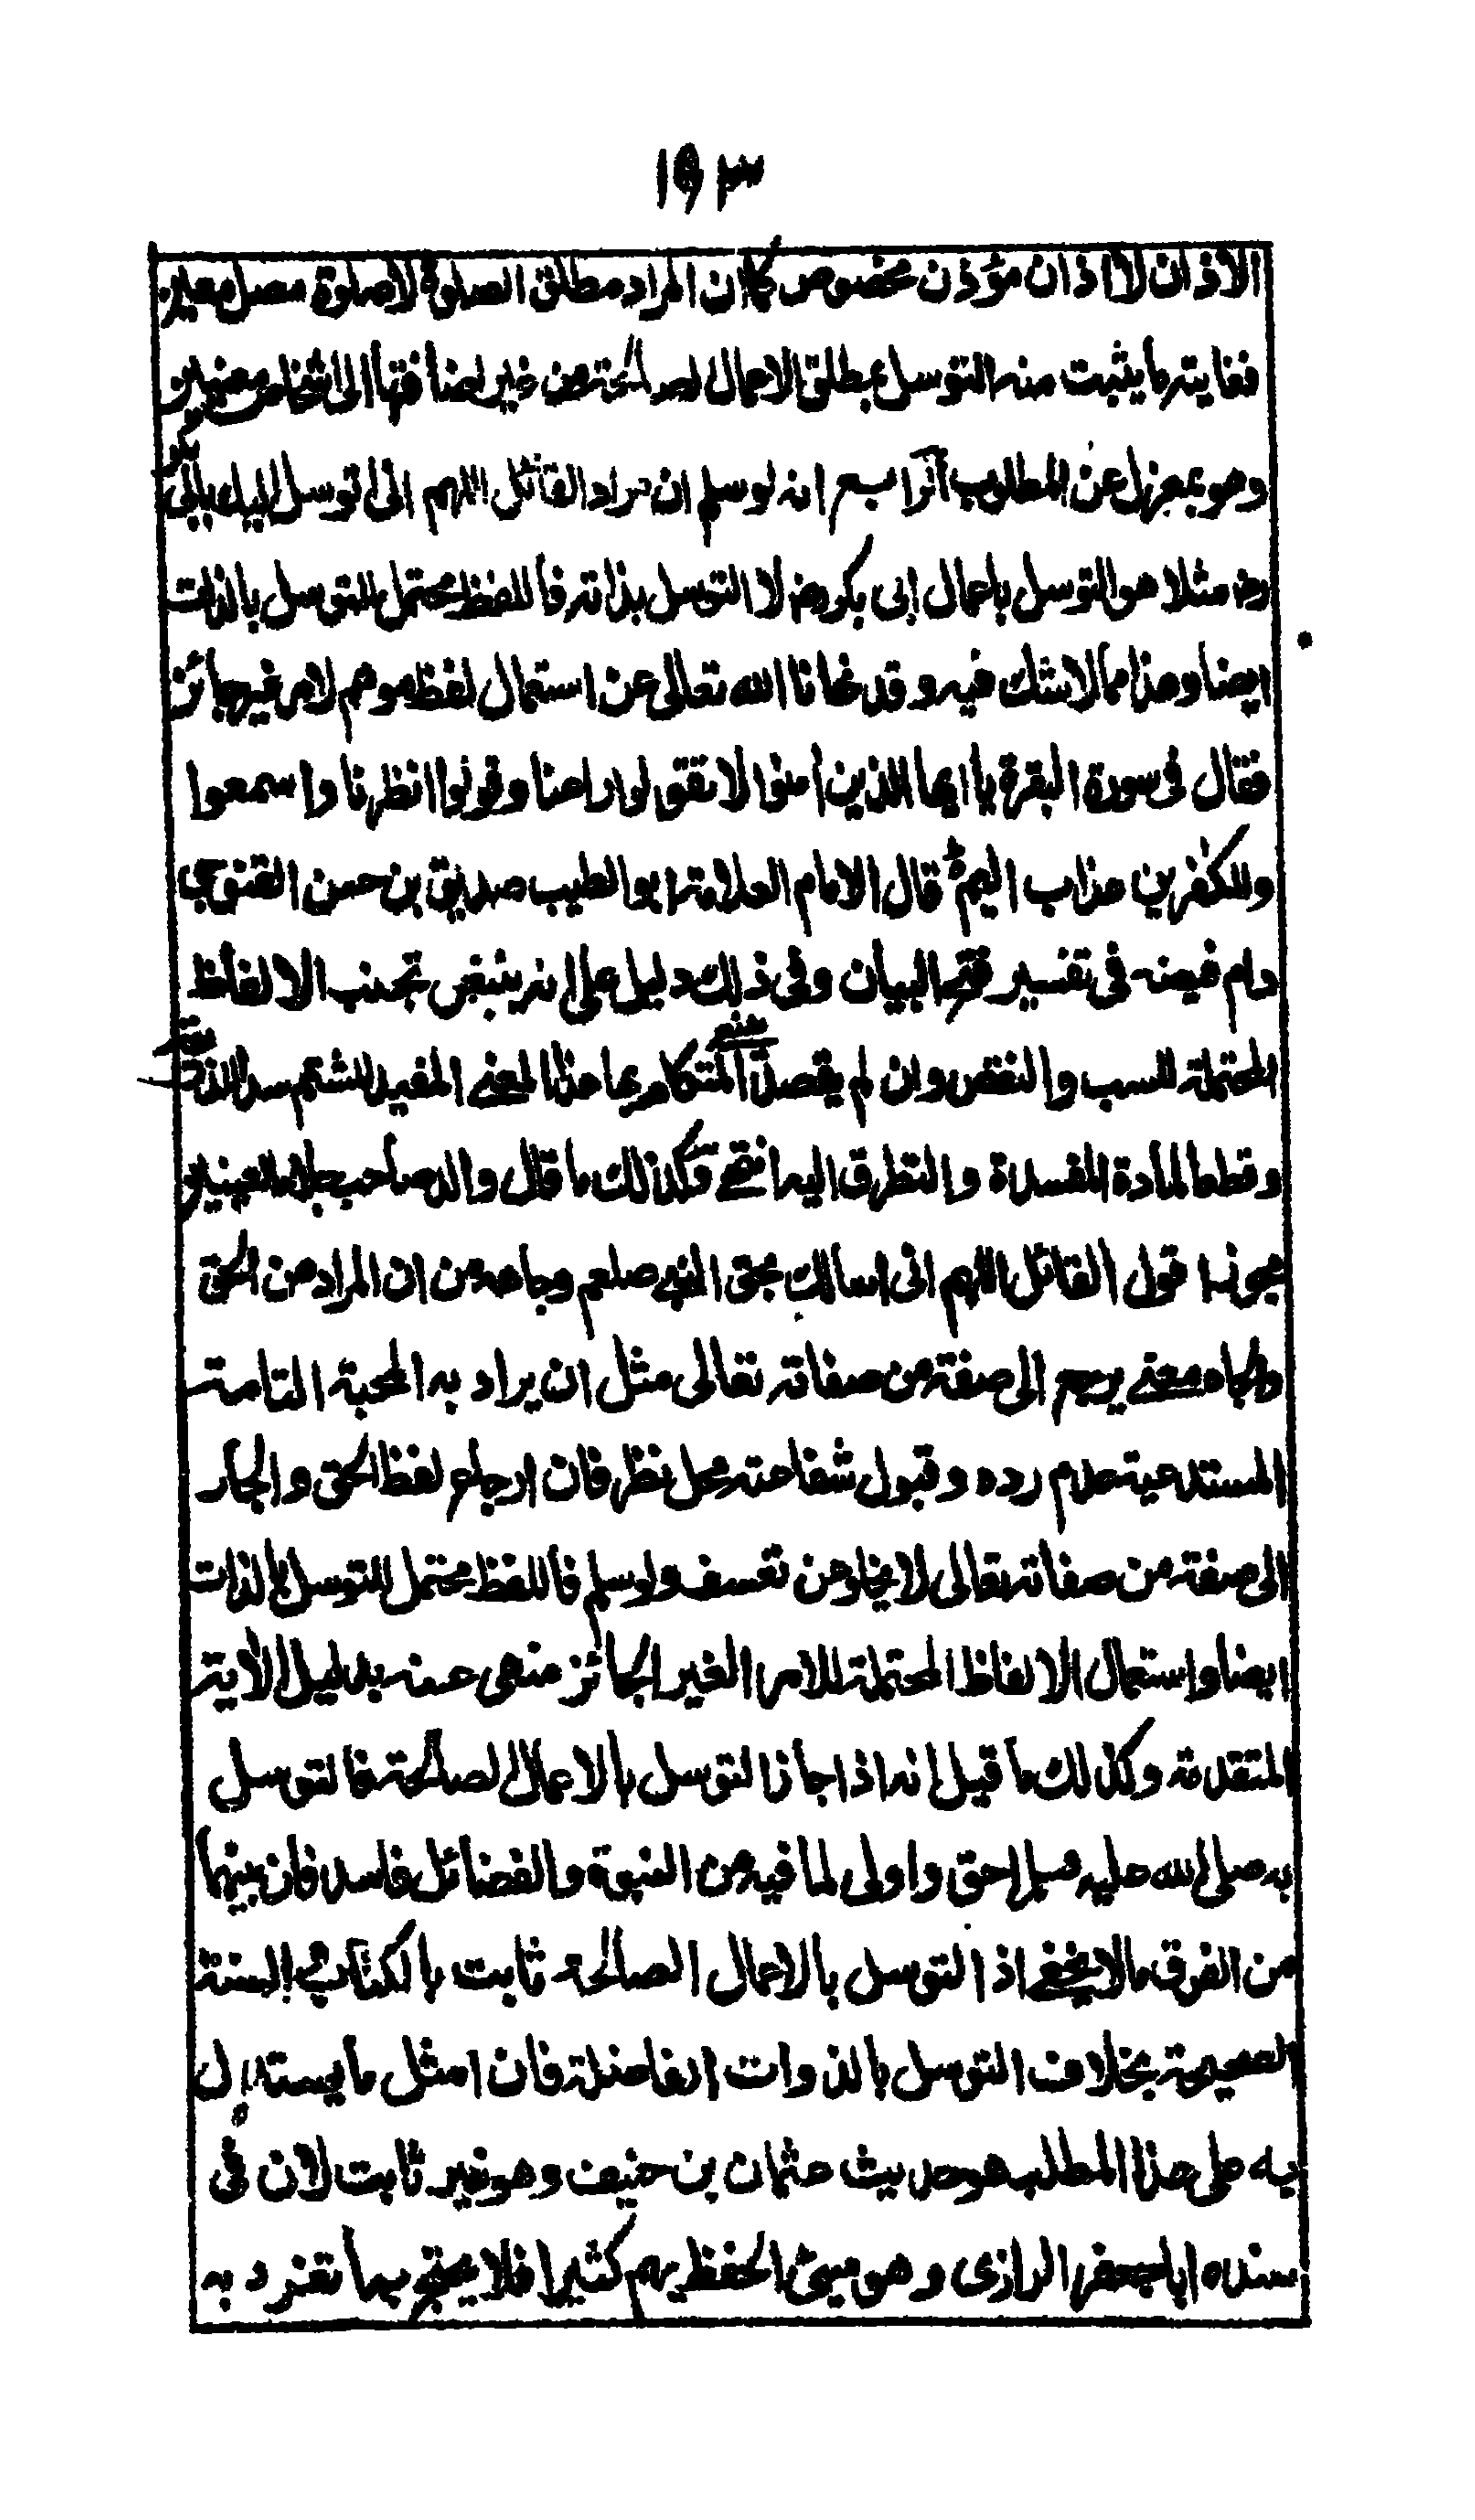 ١٩٣
الاذان لا اذان مؤذن مخصوص كان المراد مطلق الصلوة لا صلوة مصل معين
فغايته ما يثبت منه التوسل بمطلق الاعمال الصالحة من غير اضافتها الى اشخاص معينين
وهو بمعزل عن المطلوب الرابع انه لو سلم ان مراد القائل اللهم انى اتوسل اليك بابى بكر
رض مثلا هو التوسل باعمال ابى بكر رض لا التوسل بذاته فاللفظ محتمل للتوسل بالذات
ايضا وهذا مما لا شك فيه وقد نهانا الله تعالى عن استعمال لفظ موهم لامر غير جائز
فقال فى سورة البقرة يا ايها الذين امنوا لا تقولوا راعنا وقولوا انظرنا واسمعوا
وللكفرين عذاب اليم قال الامام العلامة ابو الطيب صديق بن حسن القنوجى
دام فيضه فى تفسير فتح البيان وفى ذلك دليل على انه ينبغى تجنب الالفاظ
المحتملة للسب والنقص وان لم يقصد المتكلم بها هذا المعنى المفيد للشتم سدا للذريعة
وقطعا لمادة المفسدة والتطرق اليه انتهى فكذلك ما قال والد صاحب جلاء العينين
يجوزنا قول القائل اللهم انى اسالك بحق النبى صلعم وبجاهه من ان المراد من الحق
والجاه معنى يرجع الى صفة من صفاته تعالى مثل ان يراد به المحبة التامة
المستدعية عدم رده وقبول شفاعته محل نظر فان ارجاع لفظ الحق والجاه
الى صفة من صفاته تعالى لا يخلو من تعسف ولو سلم فاللفظ محتمل للتوسل بالذات
ايضا واستعمال الالفاظ المحتملة للامر الغير الجائز منهى عنه بدليل الآية
المتقدمة وكذلك ما قيل انه اذا جاز التوسل بالاعمال الصالحة فالتوسل
به صلى الله عليه وسلم احق واولى لما فيه من النبوة والفضائل فاسد فان بينهما
من الفرق ما لا يخفى اذ التوسل بالاعمال الصالحة ثابت بالكتاب والسنة
الصحيحة بخلاف التوسل بالذوات الفاضلة فان امثل ما يستدل
به على هذا المطلب هو حديث عثمان بن حنيف وهو غير ثابت لان فى
سنده ابا جعفر الرازى وهو سيئ الحفظ يهم كثيرا فلا يحتج بما تفرد به